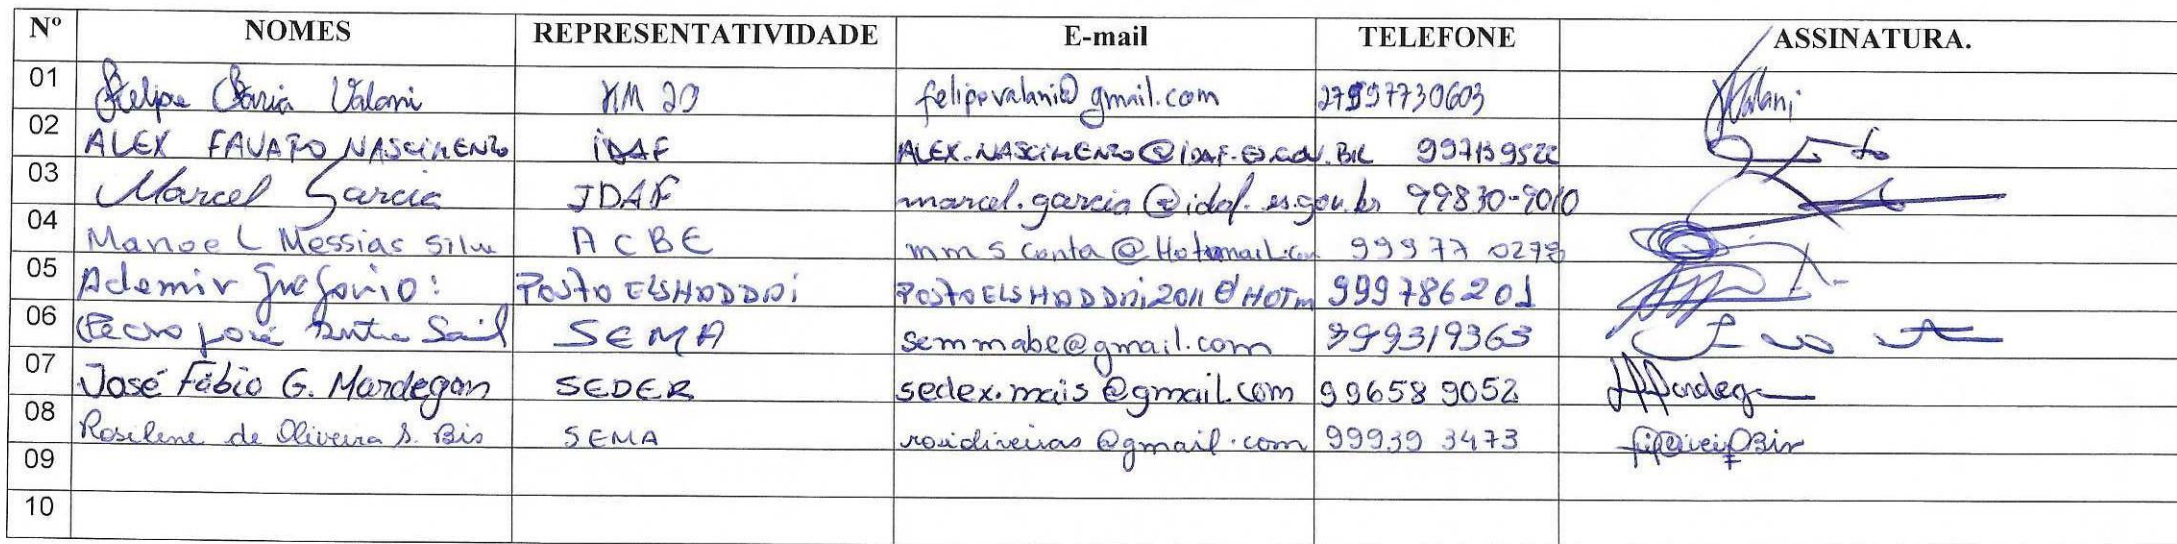 Nº NOMES REPRESENTATIVIDADE E-mail TELEFONE ASSINATURA.
01 Felipe Faria Valani KM 20 felipevalani@gmail.com 27997730603 Valani
02 ALEX FAVATO NASCIMENTO IDAF ALEX.NASCIMENTO@IDAF.ES.GOV.BR 99713952
03 Marcel Garcia IDAF marcel.garcia@idaf.es.gov.br 99830-9010
04 Manoel Messias Silva A C B E mmsconta@Hotmail.com 99977 0278
05 Ademir Gregorio: POSTO ELSHADDAI POSTOELSHADDAI2011@HOTm 999786201
06 José Sail SEMA semmabe@gmail.com 999319363
07 José Fábio G. Mardegan SEDER sedex.mais@gmail.com 99658 9052 Mardega
08 Rosilene de Oliveira S. Bis SEMA @gmail.com 99939 3473
09
10